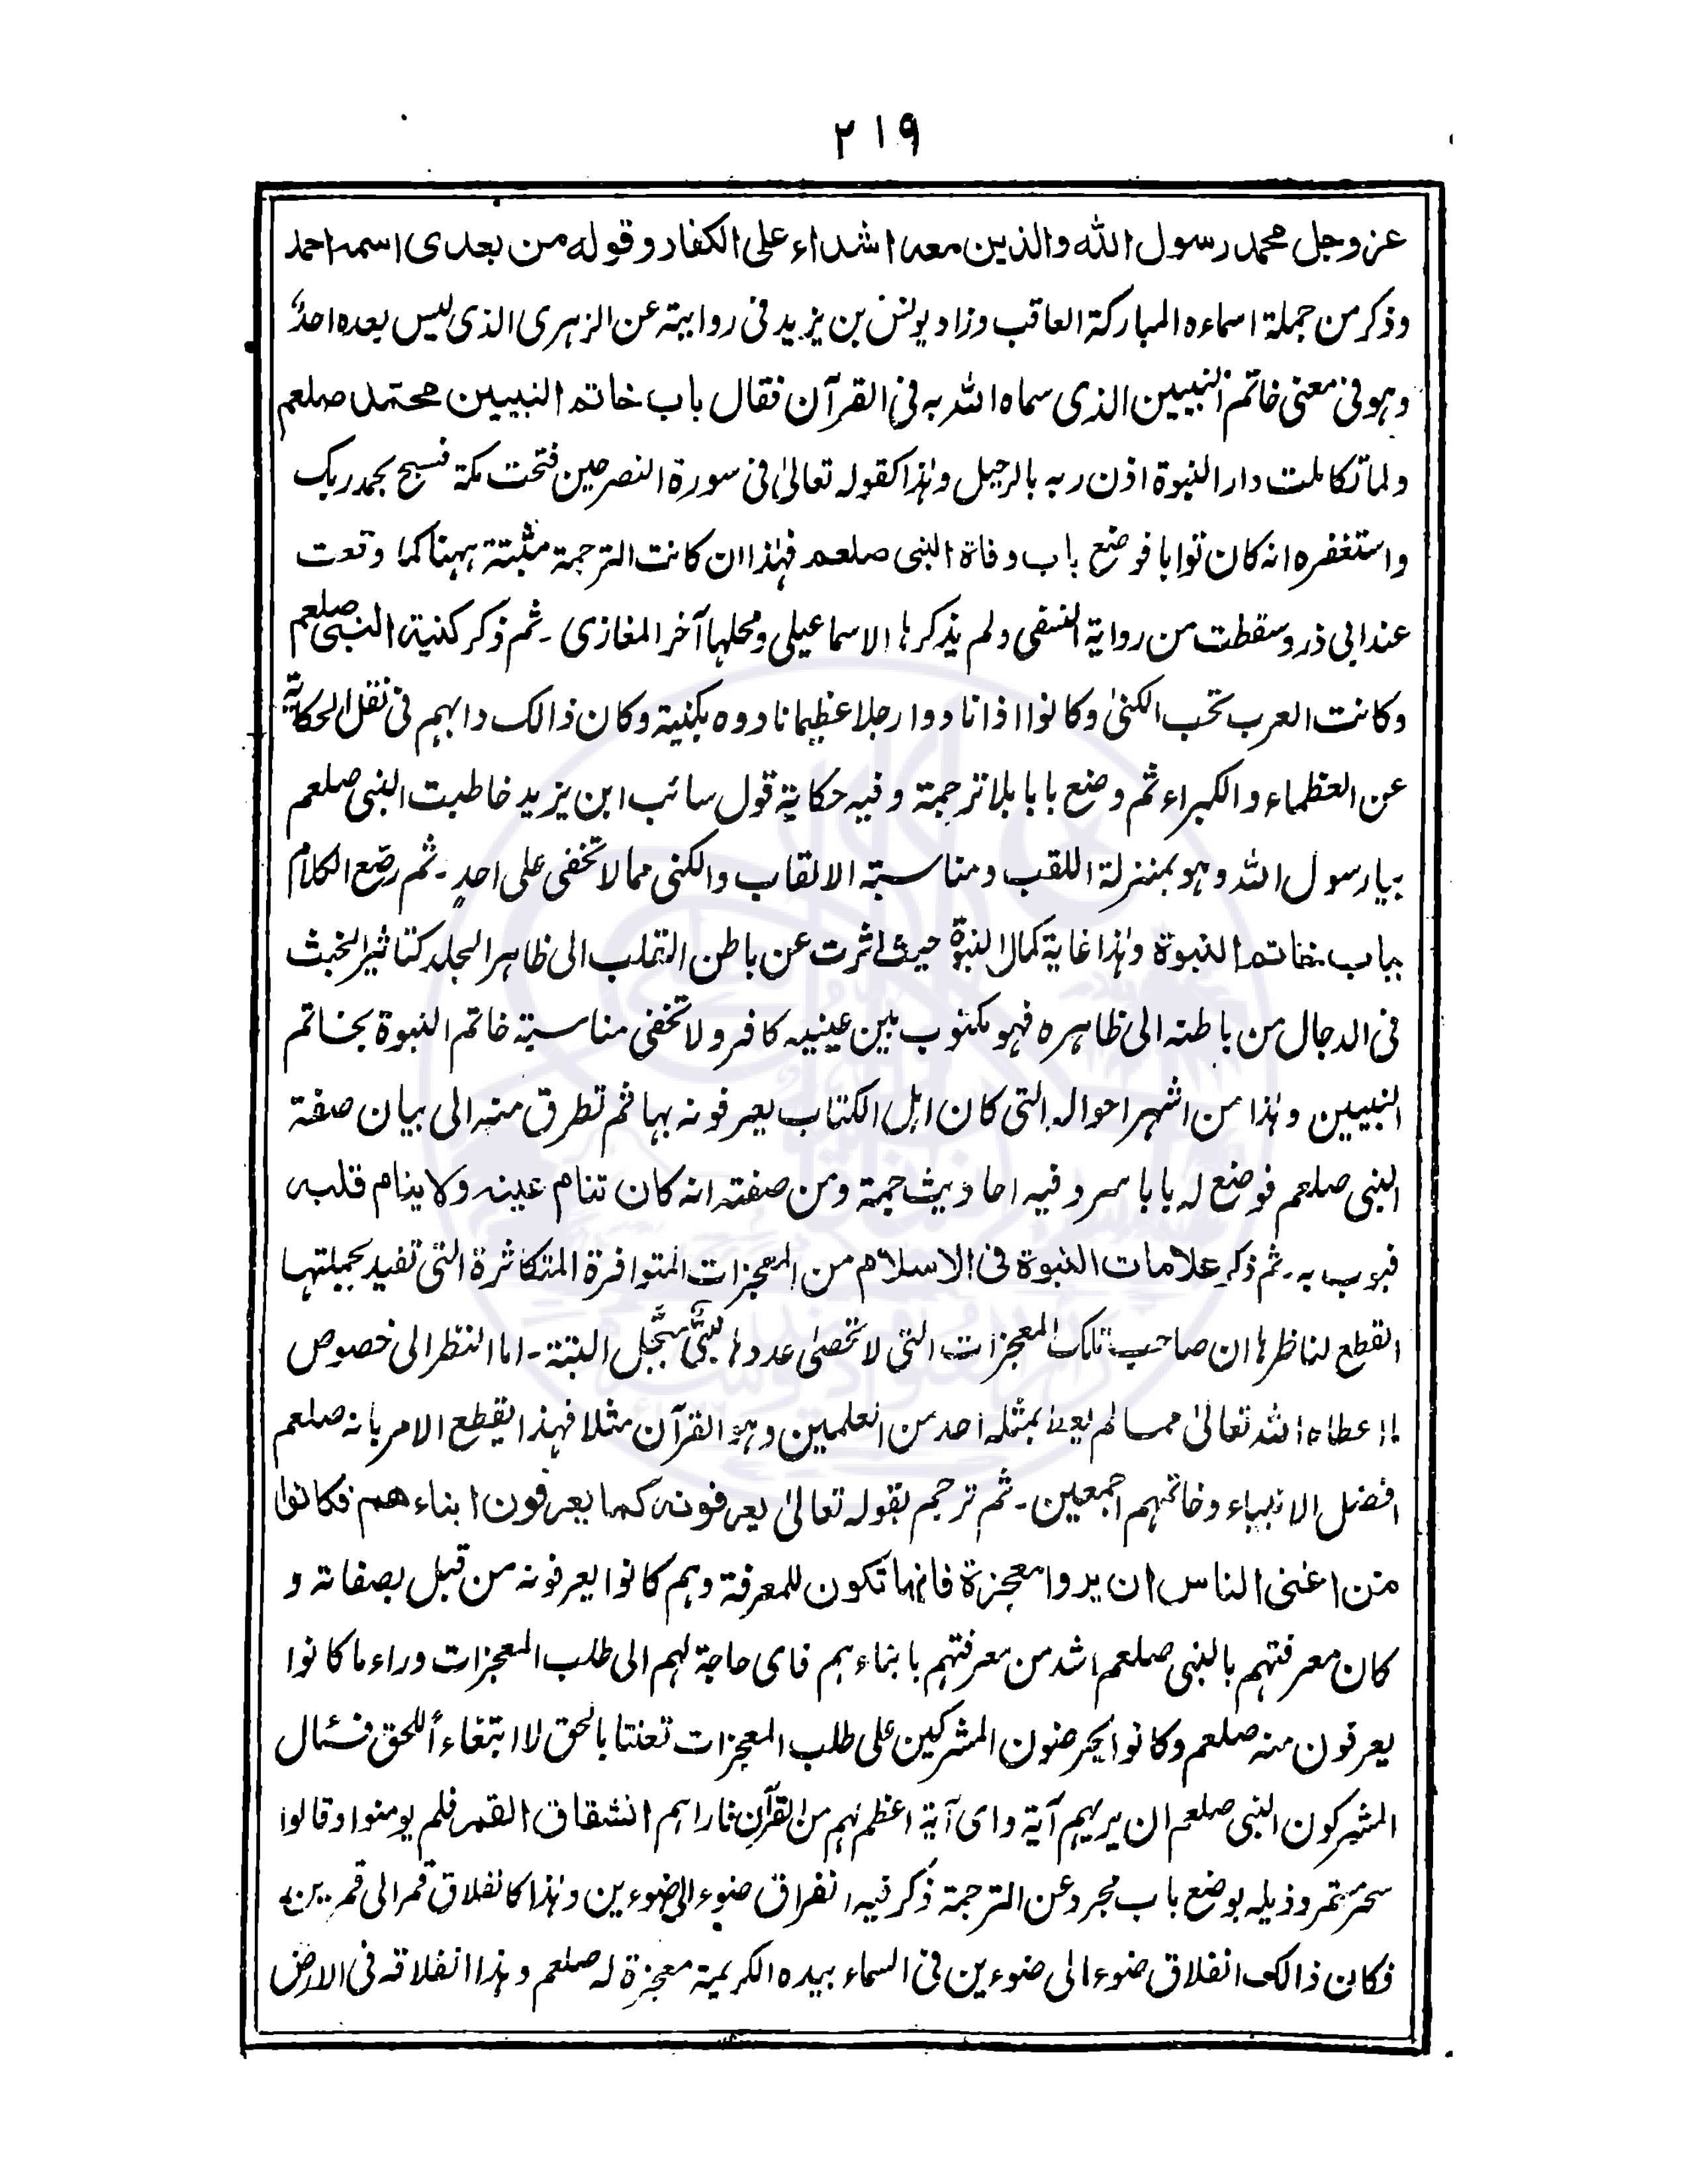 ۲۱۹
عز وجل محمد رسول الله والذین معه اشداء علی الکفار وقوله من بعدی اسمه احمد
وذکر من جملة اسماءه المبارکة العاقب وزاد یونس بن یزید فی روایته عن الزهری الذی لیس بعده احدٌ
وهو فی معنی خاتم النبیین الذی سماه الله به فی القرآن فقال باب خاتم النبیین محمّد صلعم
ولما تکاملت دار النبوة اذن ربه بالرحیل وهٰذا کقوله تعالیٰ فی سورة النصر حین فتحت مکة فسبح بحمد ربک
واستغفره انه کان توابا فوضع باب وفاة النبی صلعم فهٰذا ان کانت الترجمة مثبتة ههنا کما وقعت
عند ابی ذر وسقطت من روایة النسفی ولم یذکرها الاسماعیلی ومحلها آخر المغازی ـ ثم ذکر کنیة النبی صلعم
وکانت العرب تحب الکنیٰ وکانوا اذا نادوا رجلا عظیما نادوه بکنیة وکان ذالک دابهم فی نقل الحکایة
عن العظماء والکبراء ثم وضع بابا بلا ترجمة وفیه حکایة قول سائب ابن یزید خاطبت النبی صلعم
بیا رسول الله وهو بمنزلة اللقب ومناسبة الالقاب والکنی مما لا تخفی علی احدٍ ـ ثم رصّع الکلام
بباب خاتم النبوة وهٰذا غایة کمال النبوة حیث اثرت عن باطن القلب الی ظاهر الجلد کتاثیر الخبث
فی الدجال من باطنه الی ظاهره فهو مکتوب بین عینیه کافر ولا تخفی مناسبة خاتم النبوة بخاتم
النبیین وهٰذا من اشهر احواله التی کان اهل الکتاب یعرفونه بها ثم تطرق منه الی بیان صفة
النبی صلعم فوضع له بابا سرد فیه احادیث جمة ومن صفته انه کان تنام عینه ولا ینام قلبه
فبوب به ـ ثم ذکر علامات النبوة فی الاسلام من المعجزات المتوافرة المتکاثرة التی تفید بجملتها
القطع لناظرها ان صاحب تلک المعجزات التی لا تحصیٰ عددها نبیٌّ مبجّل البتة ـ اما النظر الی خصوص
ما اعطاه الله تعالیٰ مما لم یعط بمثله احد من العلمین وهو القرآن مثلا فهذا یقطع الامر بانه صلعم
افضل الانبیاء وخاتمهم اجمعین ـ ثم ترجم بقوله تعالیٰ یعرفونه کما یعرفون ابناء هم فکانوا
من اغنی الناس ان یروا معجزة فانها تکون للمعرفة وهم کانوا یعرفونه من قبل بصفاته و
کان معرفتهم بالنبی صلعم اشد من معرفتهم بابناء هم فای حاجة لهم الی طلب المعجزات وراء ما کانوا
یعرفون منه صلعم وکانوا یحرضون المشرکین علی طلب المعجزات تعنتا بالحق لا ابتغاءً للحق فسئال
المشرکون النبی صلعم ان یریهم آیة وای آیة اعظم لهم من القرآن فاراهم انشقاق القمر فلم یومنوا وقالوا
سحر مستمر وذیله بوضع باب مجرد عن الترجمة ذکر فیه انفراق ضوء الی ضوءین وهٰذا کانفلاق قمر الی قمرین
فکان ذالک انفلاق ضوء الی ضوءین فی السماء بیده الکریمة معجزة له صلعم وهٰذا انفلاقه فی الارض